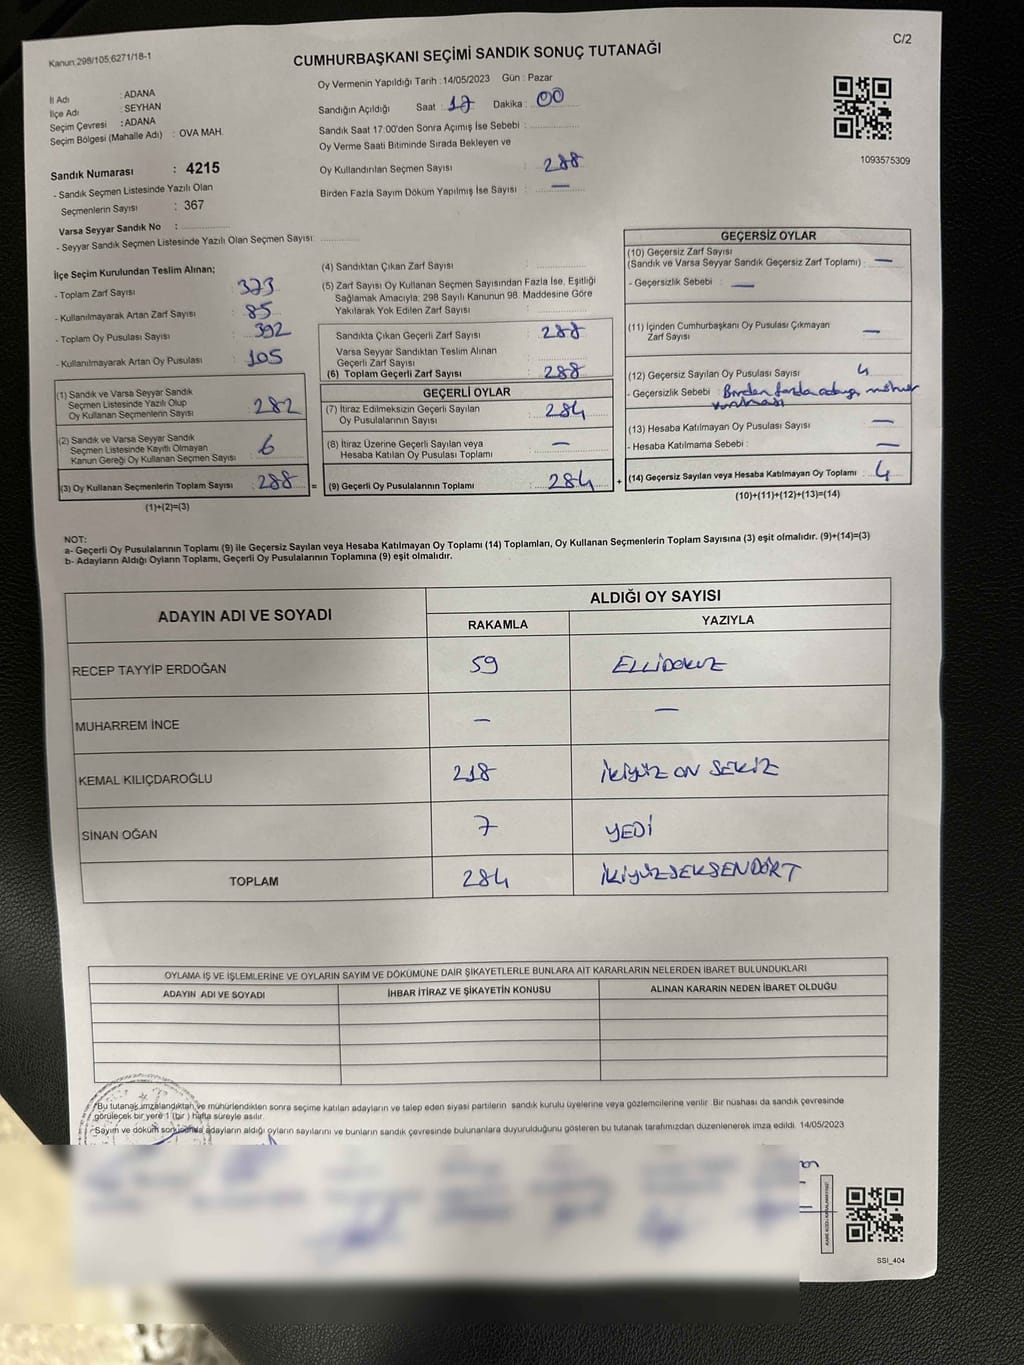 Kanun:298/105,6271/18-1
CUMHURBAŞKANI SEÇİMİ SANDIK SONUÇ TUTANAĞI
C/2
Oy Vermenin Yapıldığı Tarih : 14/05/2023 Gün : Pazar
İl Adı : ADANA
İlçe Adı : SEYHAN
Seçim Çevresi : ADANA
Seçim Bölgesi (Mahalle Adı) : OVA MAH.
Sandığın Açıldığı Saat : 17 Dakika : 00
Sandık Saat 17:00'den Sonra Açımış İse Sebebi :
Oy Verme Saati Bitiminde Sırada Bekleyen ve
Oy Kullandırılan Seçmen Sayısı : 288
Birden Fazla Sayım Döküm Yapılmış İse Sayısı : —
1093575309
Sandık Numarası : 4215
- Sandık Seçmen Listesinde Yazılı Olan
Seçmenlerin Sayısı : 367
Varsa Seyyar Sandık No :
- Seyyar Sandık Seçmen Listesinde Yazılı Olan Seçmen Sayısı:
İlçe Seçim Kurulundan Teslim Alınan;
- Toplam Zarf Sayısı : 373
- Kullanılmayarak Artan Zarf Sayısı : 85
- Toplam Oy Pusulası Sayısı : 392
- Kullanılmayarak Artan Oy Pusulası : 105
(1) Sandık ve Varsa Seyyar Sandık
Seçmen Listesinde Yazılı Olup
Oy Kullanan Seçmenlerin Sayısı : 282
(2) Sandık ve Varsa Seyyar Sandık
Seçmen Listesinde Kayıtlı Olmayan
Kanun Gereği Oy Kullanan Seçmen Sayısı : 6
(3) Oy Kullanan Seçmenlerin Toplam Sayısı : 288
(1)+(2)=(3)
(4) Sandıktan Çıkan Zarf Sayısı :
(5) Zarf Sayısı Oy Kullanan Seçmen Sayısından Fazla İse, Eşitliği
Sağlamak Amacıyla; 298 Sayılı Kanunun 98. Maddesine Göre
Yakılarak Yok Edilen Zarf Sayısı :
Sandıkta Çıkan Geçerli Zarf Sayısı : 288
Varsa Seyyar Sandıktan Teslim Alınan
Geçerli Zarf Sayısı :
(6) Toplam Geçerli Zarf Sayısı : 288
GEÇERLİ OYLAR
(7) İtiraz Edilmeksizin Geçerli Sayılan
Oy Pusulalarının Sayısı : 284
(8) İtiraz Üzerine Geçerli Sayılan veya
Hesaba Katılan Oy Pusulası Toplamı : —
= (9) Geçerli Oy Pusulalarının Toplamı : 284 +
GEÇERSİZ OYLAR
(10) Geçersiz Zarf Sayısı
(Sandık ve Varsa Seyyar Sandık Geçersiz Zarf Toplamı) : —
- Geçersizlik Sebebi : —
(11) İçinden Cumhurbaşkanı Oy Pusulası Çıkmayan
Zarf Sayısı : —
(12) Geçersiz Sayılan Oy Pusulası Sayısı : 4
- Geçersizlik Sebebi : Birden fazla adaya mühür
vurulması
(13) Hesaba Katılmayan Oy Pusulası Sayısı : —
- Hesaba Katılmama Sebebi : —
(14) Geçersiz Sayılan veya Hesaba Katılmayan Oy Toplamı : 4
(10)+(11)+(12)+(13)=(14)
NOT:
a- Geçerli Oy Pusulalarının Toplamı (9) ile Geçersiz Sayılan veya Hesaba Katılmayan Oy Toplamı (14) Toplamları, Oy Kullanan Seçmenlerin Toplam Sayısına (3) eşit olmalıdır. (9)+(14)=(3)
b- Adayların Aldığı Oyların Toplamı, Geçerli Oy Pusulalarının Toplamına (9) eşit olmalıdır.
ADAYIN ADI VE SOYADI
ALDIĞI OY SAYISI
RAKAMLA YAZIYLA
RECEP TAYYİP ERDOĞAN 59 ELLİDOKUZ
MUHARREM İNCE — —
KEMAL KILIÇDAROĞLU 218 İKİYÜZ ON SEKİZ
SİNAN OĞAN 7 YEDİ
TOPLAM 284 İKİYÜZSEKSENDÖRT
OYLAMA İŞ VE İŞLEMLERİNE VE OYLARIN SAYIM VE DÖKÜMÜNE DAİR ŞİKAYETLERLE BUNLARA AİT KARARLARIN NELERDEN İBARET BULUNDUKLARI
ADAYIN ADI VE SOYADI İHBAR İTİRAZ VE ŞİKAYETİN KONUSU ALINAN KARARIN NEDEN İBARET OLDUĞU
Bu tutanak imzalandıktan ve mühürlendikten sonra seçime katılan adayların ve talep eden siyasi partilerin sandık kurulu üyelerine veya gözlemcilerine verilir. Bir nüshası da sandık çevresinde
görülecek bir yere 1 (bir) hafta süreyle asılır.
Sayım ve döküm sonucunda adayların aldığı oyların sayılarını ve bunların sandık çevresinde bulunanlara duyurulduğunu gösteren bu tutanak tarafımızdan düzenlenerek imza edildi. 14/05/2023
SSI_404